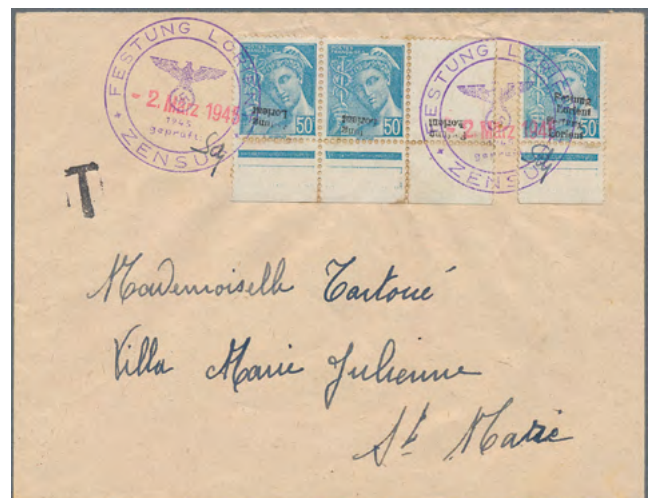 FESTUNG LORIENT
- 2. März 1945
1945
geprüft
ZENSUR
50
Lorient
50
Lorient
FESTUNG LORIENT
- 2. März 1945
geprüft
ZENSUR
50
T
Mademoiselle Tartoué
Villa Marie Julienne
St Marie